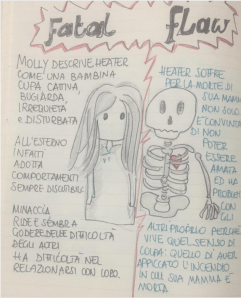 Fatal Flaw
MOLLY DESCRIVE HEATER
COME UNA BAMBINA
CUPA CATTIVA
BUGIARDA
IRREQUIETA
e DISTURBATA
ALL'ESTERNO
INFATTI
ADOTTA
COMPORTAMENTI
SEMPRE DISCUTIBILI
MINACCIA
RIDE E SEMBRA
GODERE DELLE DIFFICOLTÀ
DEGLI ALTRI
HA DIFFICOLTÀ NEL
RELAZIONARSI CON LORO.
HEATER SOFFRE
PER LA MORTE DI
SUA MAMMA
NON SOLO
E' CONVINTA
DI NON
POTER
ESSERE
AMATA
ED HA
PROBLEMI
CON
GLI
ALTRI PROPRIO PERCHÉ
VIVE QUEL SENSO DI
COLPA: QUELLO DI AVER
APPICCATO L'INCENDIO
IN CUI SUA MAMMA È
MORTA